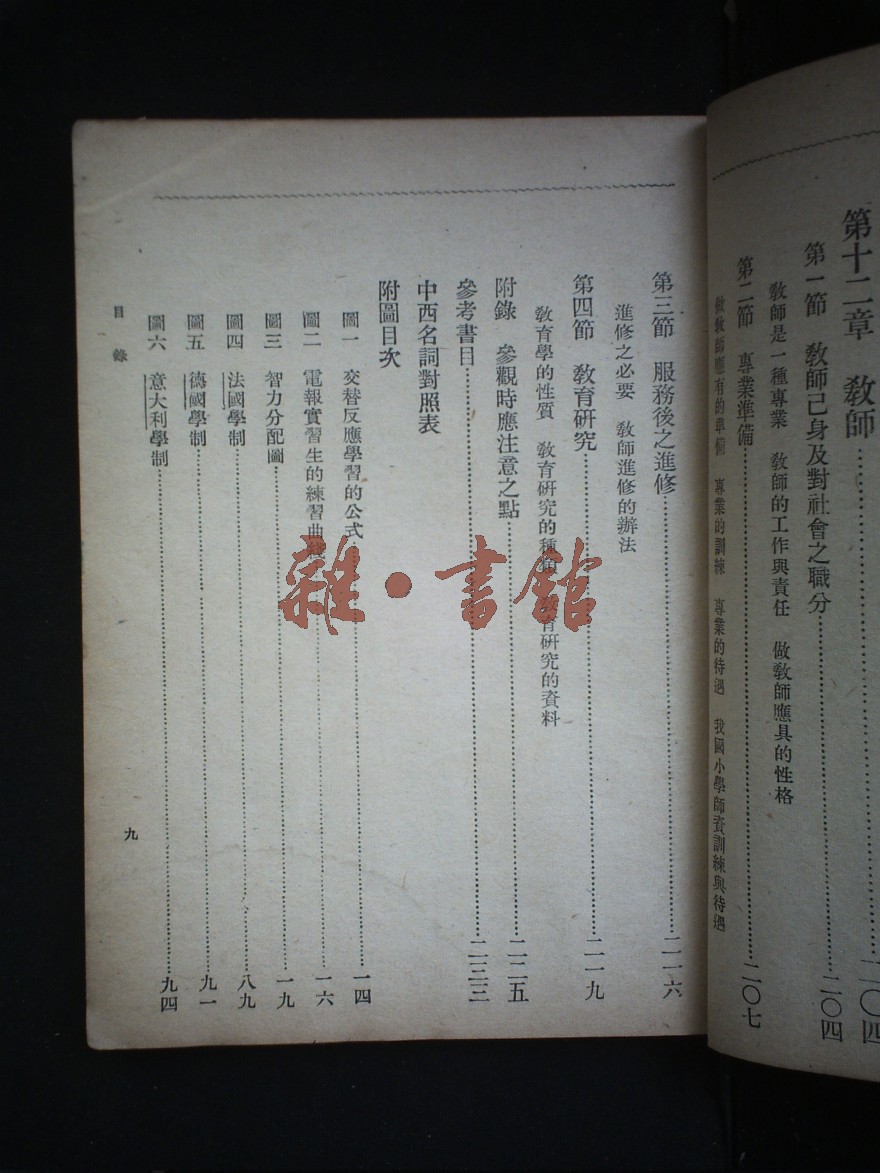 第十二章 教師……二〇四
第一節 教師己身及對社會之職分……二〇四
教師是一種專業 教師的工作與責任 做教師應具的性格
第二節 專業準備……二〇七
做教師應有的準備 專業的訓練 專業的待遇 我國小學師資訓練與待遇
第三節 服務後之進修……二一六
進修之必要 教師進修的辦法
第四節 教育研究……二一九
教育學的性質 教育研究的種類 教育研究的資料
附錄 參觀時應注意之點……二二五
參考書目……二三三
中西名詞對照表
附圖目次
圖一 交替反應學習的公式……一四
圖二 電報實習生的練習曲線……一六
圖三 智力分配圖……一九
圖四 法國學制……八九
圖五 德國學制……九一
圖六 意大利學制……九四
目錄
九
雜·書館